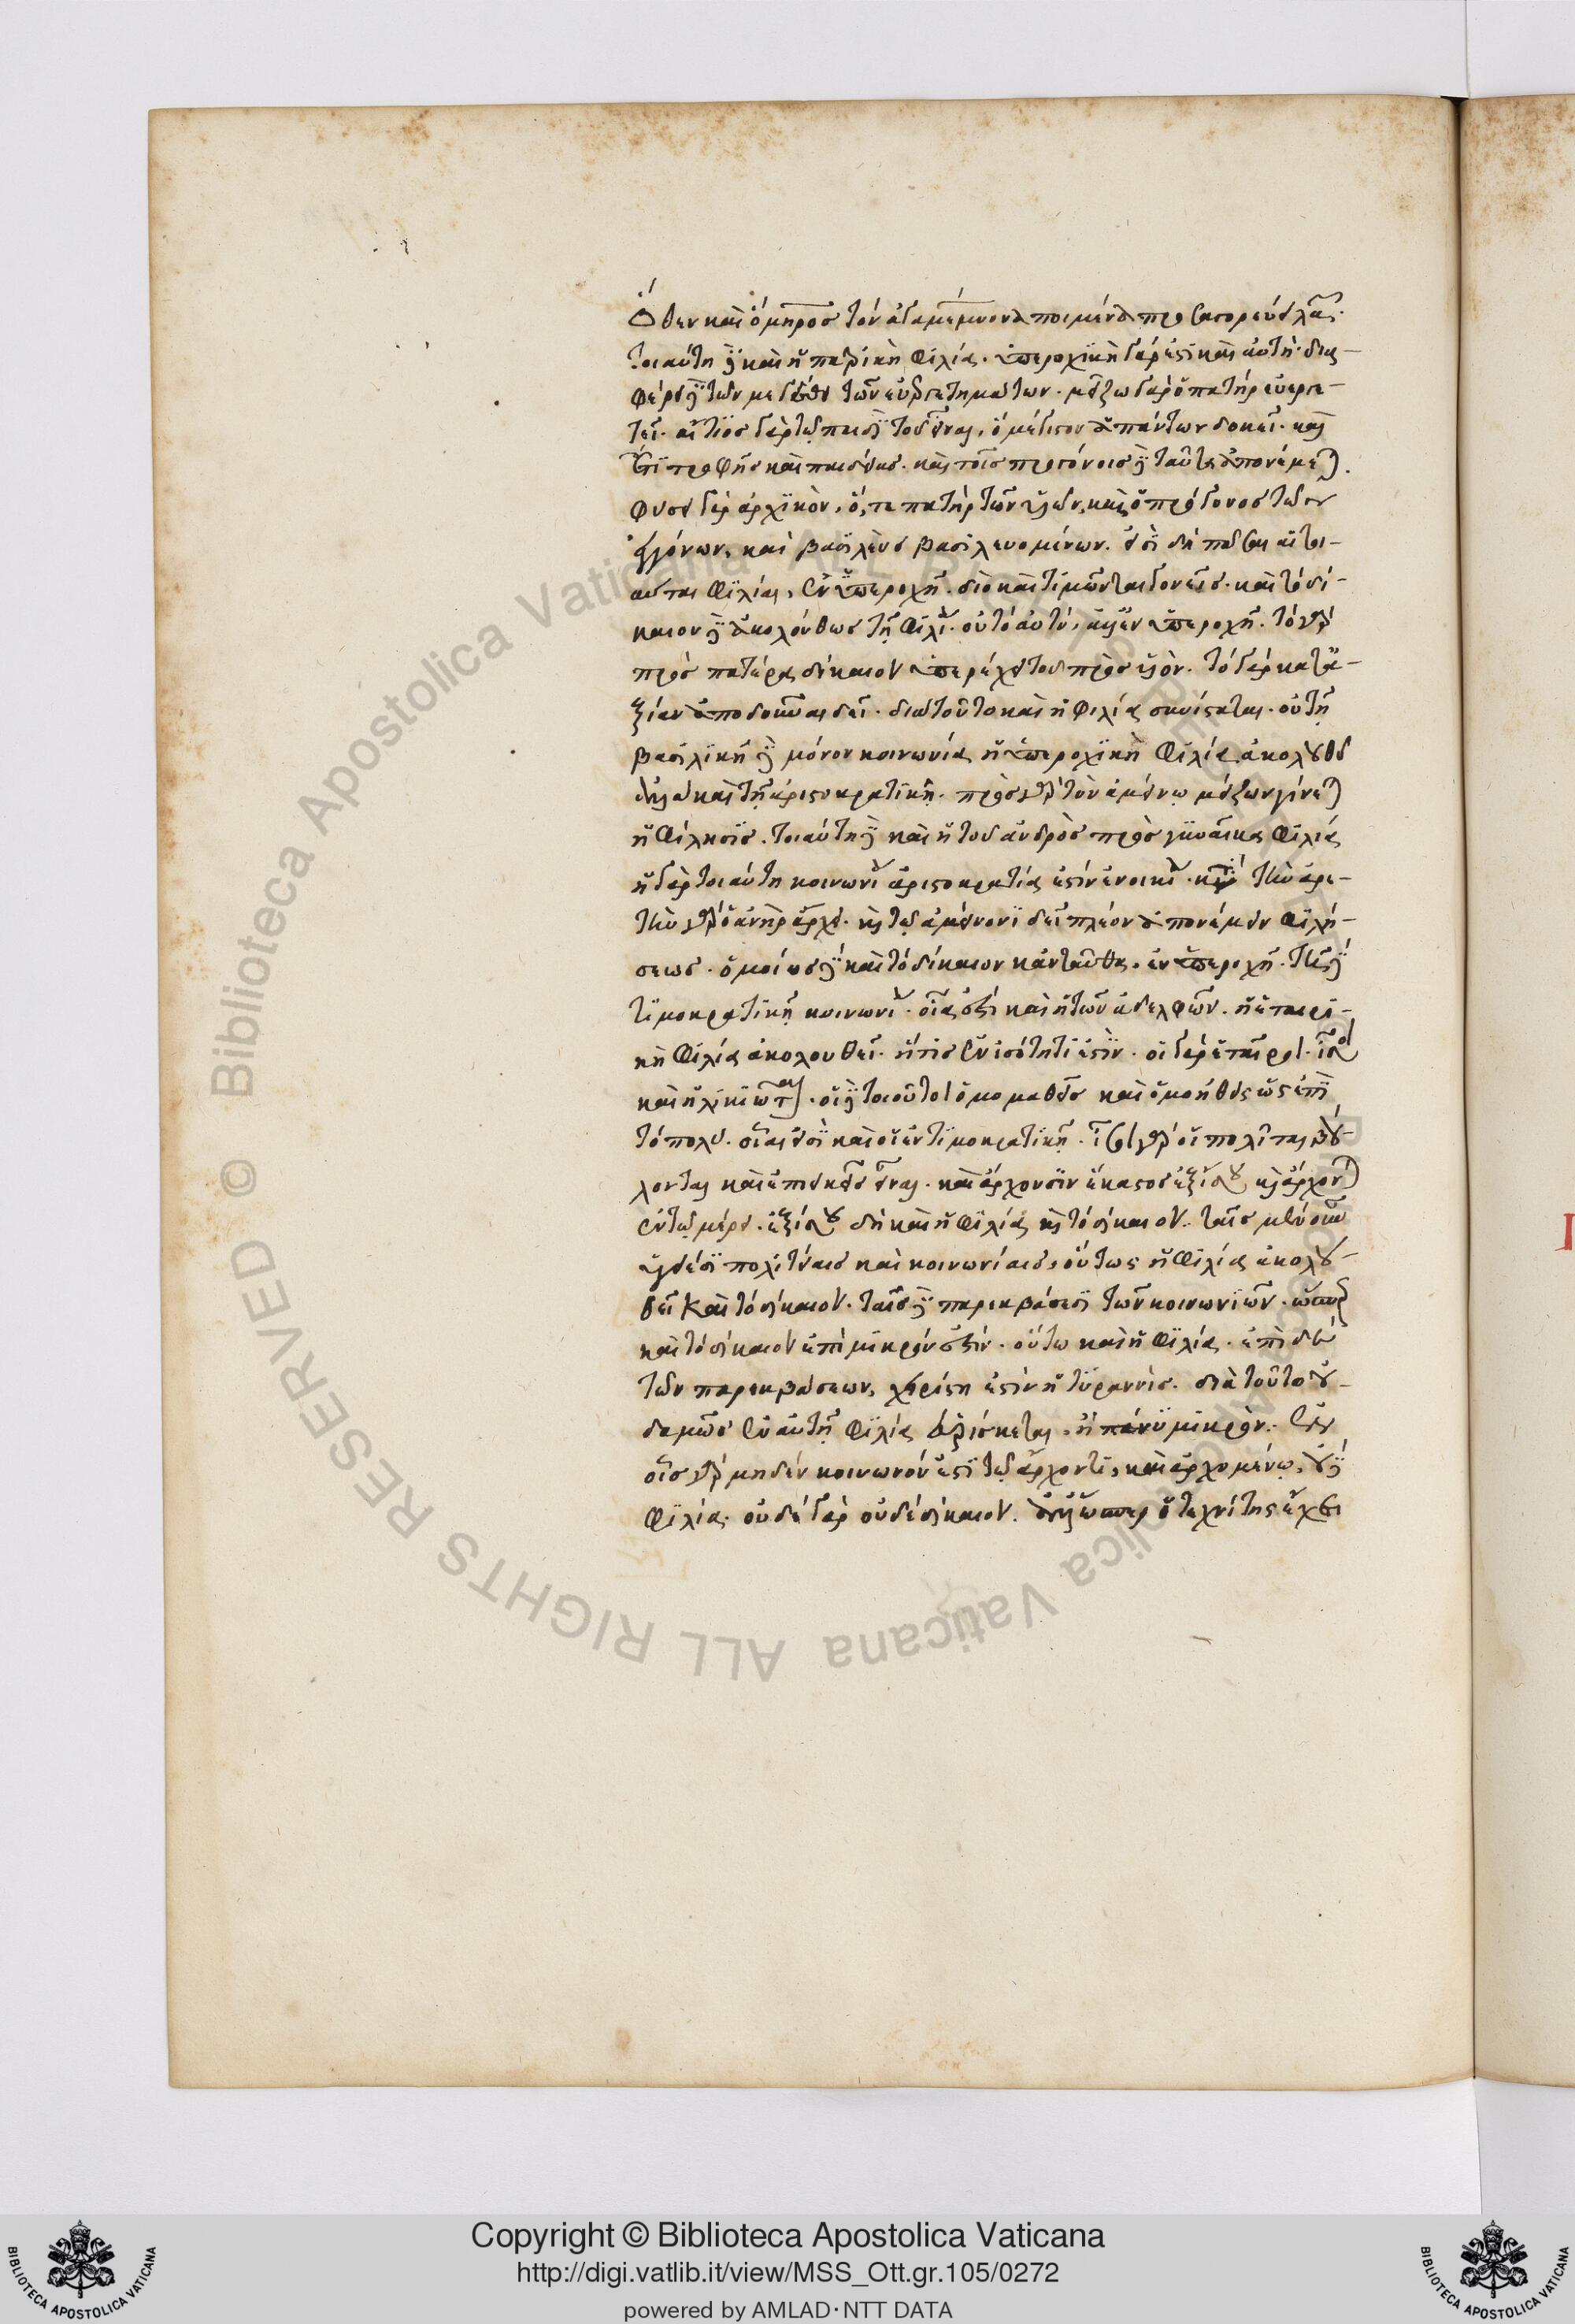 Ὅθεν καὶ ὅμηρος τὸν ἀγαμέμνονα ποιμένα προσαγορεύει λαῶν.
τοιαύτη δὲ καὶ ἡ πατρικὴ φιλία. ὑπεροχικὴ γάρ ἐστι καὶ αὐτή· δια-
φέρει δὲ τῶ μεγέθει τῶν εὐεργετημάτων. μείζω γὰρ ὁ πατὴρ εὐεργε-
τεῖ. αἴτιος γὰρ τῷ παιδὶ τοῦ εἶναι, ὃ μέγιστον ἁπάντων δοκεῖ. καὶ
ἔτι τροφῆς καὶ παιδείας. καὶ τοῖς προγόνοις δὲ ταῦτα ἀπονέμεται.
φύσει γὰρ ἀρχικὸν, ὅ, τε πατὴρ τῶν υἱῶν, καὶ ὁ πρόγονος τῶν
ἐκγόνων, καὶ βασιλεὺς βασιλευομένων. εἰσὶ δὴ πᾶσαι αἱ τοι-
αῦται φιλίαι, ἐν ὑπεροχῇ. διὸ καὶ τιμῶνται γονεῖς. καὶ τὸ δί-
καιον δὲ ἀκολούθως τῇ φιλίᾳ. οὐ τὸ αὐτό, ἀλλ' ἐν ὑπεροχῇ. τὸ γὰρ
πρὸς πατέρα δίκαιον ὑπερέχει τοῦ πρὸς υἱὸν. τὸ γὰρ κατ' ἀ-
ξίαν ἀποδοῦναι δεῖ. διὰ τοῦτο καὶ ἡ φιλία συνίσταται. οὐ τῇ
βασιλικῇ δὲ μόνον κοινωνίᾳ ἡ ὑπεροχικὴ φιλία ἀκολουθεῖ
ἀλλὰ καὶ τῇ ἀριστοκρατικῇ. πρὸς γὰρ τὸν ἀμείνω μείζων γίνεται
ἡ φίλησις. τοιαύτη δὲ καὶ ἡ τοῦ ἀνδρὸς πρὸς γυναῖκα φιλία
ἡ γὰρ τοιαύτη κοινωνία ἀριστοκρατία ἐστὶν ἐν οἰκίᾳ. κατὰ τὴν ἀρε-
τὴν γὰρ ὁ ἀνὴρ ἄρχει. καὶ τῷ ἀμείνονι δεῖ πλέον ἀπονέμειν φιλή-
σεως. ὁμοίως δὲ καὶ τὸ δίκαιον κἀνταῦθα, ἐν ὑπεροχῇ. τῇ δὲ
τιμοκρατικῇ κοινωνίᾳ. οἵα ἐστὶ καὶ ἡ τῶν ἀδελφῶν. ἡ ἑταιρι-
κὴ φιλία ἀκολουθεῖ. ἥτις ἐν ἰσότητί ἐστιν. οἱ γὰρ ἑταῖροι. ἴσοι
καὶ ἡλικιῶται. οἱ δὲ τοιοῦτοι ὁμομαθεῖς καὶ ὁμοήθεις ὡς ἐπὶ
τὸ πολύ. οἷαι εἰσὶ καὶ οἱ ἐν τιμοκρατικῇ. ἴσοι γὰρ οἱ πολῖται βού-
λονται καὶ ἐπιεικεῖς εἶναι. καὶ ἄρχουσιν ἕκαστος ἐξ ἴσου καὶ ἄρχονται
ἐν τῷ μέρει. ἐξ ἴσου δὴ καὶ ἡ φιλία καὶ τὸ δίκαιον. ταῖς μὲν οὖν
ὑγιέσι πολιτείαις καὶ κοινωνίαις, οὕτως ἡ φιλία ἀκολου-
θεῖ καὶ τὸ δίκαιον. ταῖς δὲ παρεκβάσεσι τῶν κοινωνιῶν. ὥσπερ
καὶ τὸ δίκαιον ἐπὶ μικρόν ἐστιν. οὕτω καὶ ἡ φιλία. ἐπεὶ δὲ
τῶν παρεκβάσεων, χειρίστη ἐστὶν ἡ τυραννὶς. διὰ τοῦτο οὐ-
δαμῶς ἐν αὐτῇ φιλία εὑρίσκεται, ἢ πάνυ μικρὸν. ἐν
οἷς γὰρ μηδὲν κοινωνόν ἐστι τῷ ἄρχοντι, καὶ ἀρχομένῳ, οὐδὲ
φιλία. οὐδὲ γὰρ οὐδὲ δίκαιον. ἀλλ' ὥσπερ ὁ τεχνίτης ἔχει
Copyright © Biblioteca Apostolica Vaticana
http://digi.vatlib.it/view/MSS_Ott.gr.105/0272
powered by AMLAD·NTT DATA